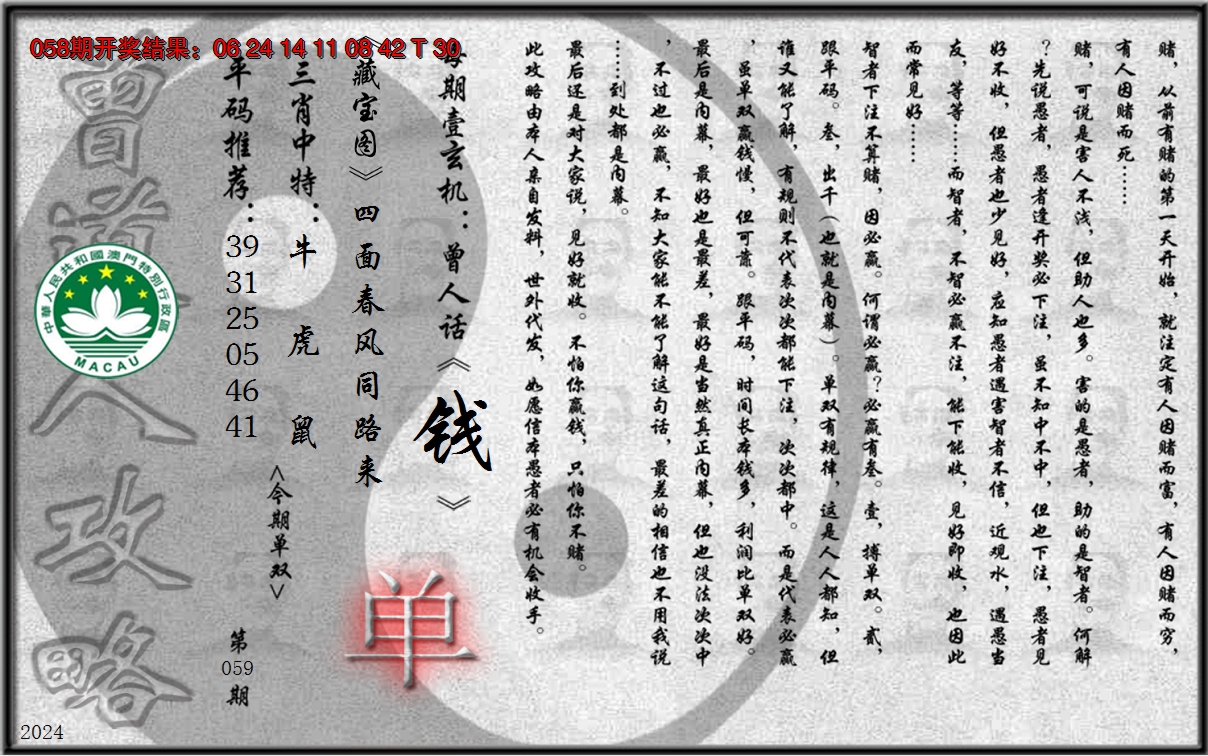 058期开奖结果：06 24 14 11 08 42 T 30
赌，从前有赌的第一天开始，就注定有人因赌而富，有人因赌而穷，
有人因赌而死……
赌，可说是害人不浅，但助人也多。害的是愚者，助的是智者。何解
？先说愚者，愚者逢开奖必下注，虽不知中不中，但也下注，愚者见
好不收，但愚者也少见好，应知愚者遇害智者不信，近观水，遇愚当
友，等等……而智者，不智必赢不注，能下能收，见好即收，也因此
而常见好……
智者下注不算赌，因必赢。何谓必赢？必赢有叁。壹，搏单双。贰，
跟平码。叁，出千（也就是内幕）。单双有规律，这是人人都知，但
谁又能了解，有规则不代表次次都能下注，次次都中。而是代表必赢
，虽单双赢钱慢，但可靠。跟平码，时间长本钱多，利润比单双好。
最后是内幕，最好也是最差，最好是当然真正内幕，但也没法次次中
，不过也必赢，不知大家能不能了解这句话，最差的相信也不用我说
……到处都是内幕。
最后还是对大家说，见好就收。不怕你赢钱，只怕你不赌。
此攻略由本人亲自发料，世外代发，如愿信本愚者必有机会收手。
每期壹玄机：曾人话《钱》
《藏宝图》四面春风同路来
单
三肖中特：牛 虎 鼠
<今期单双>
平码推荐：39 31 25 05 46 41
第059期
曾道人攻略
中華人民共和國澳門特別行政區
MACAU
2024